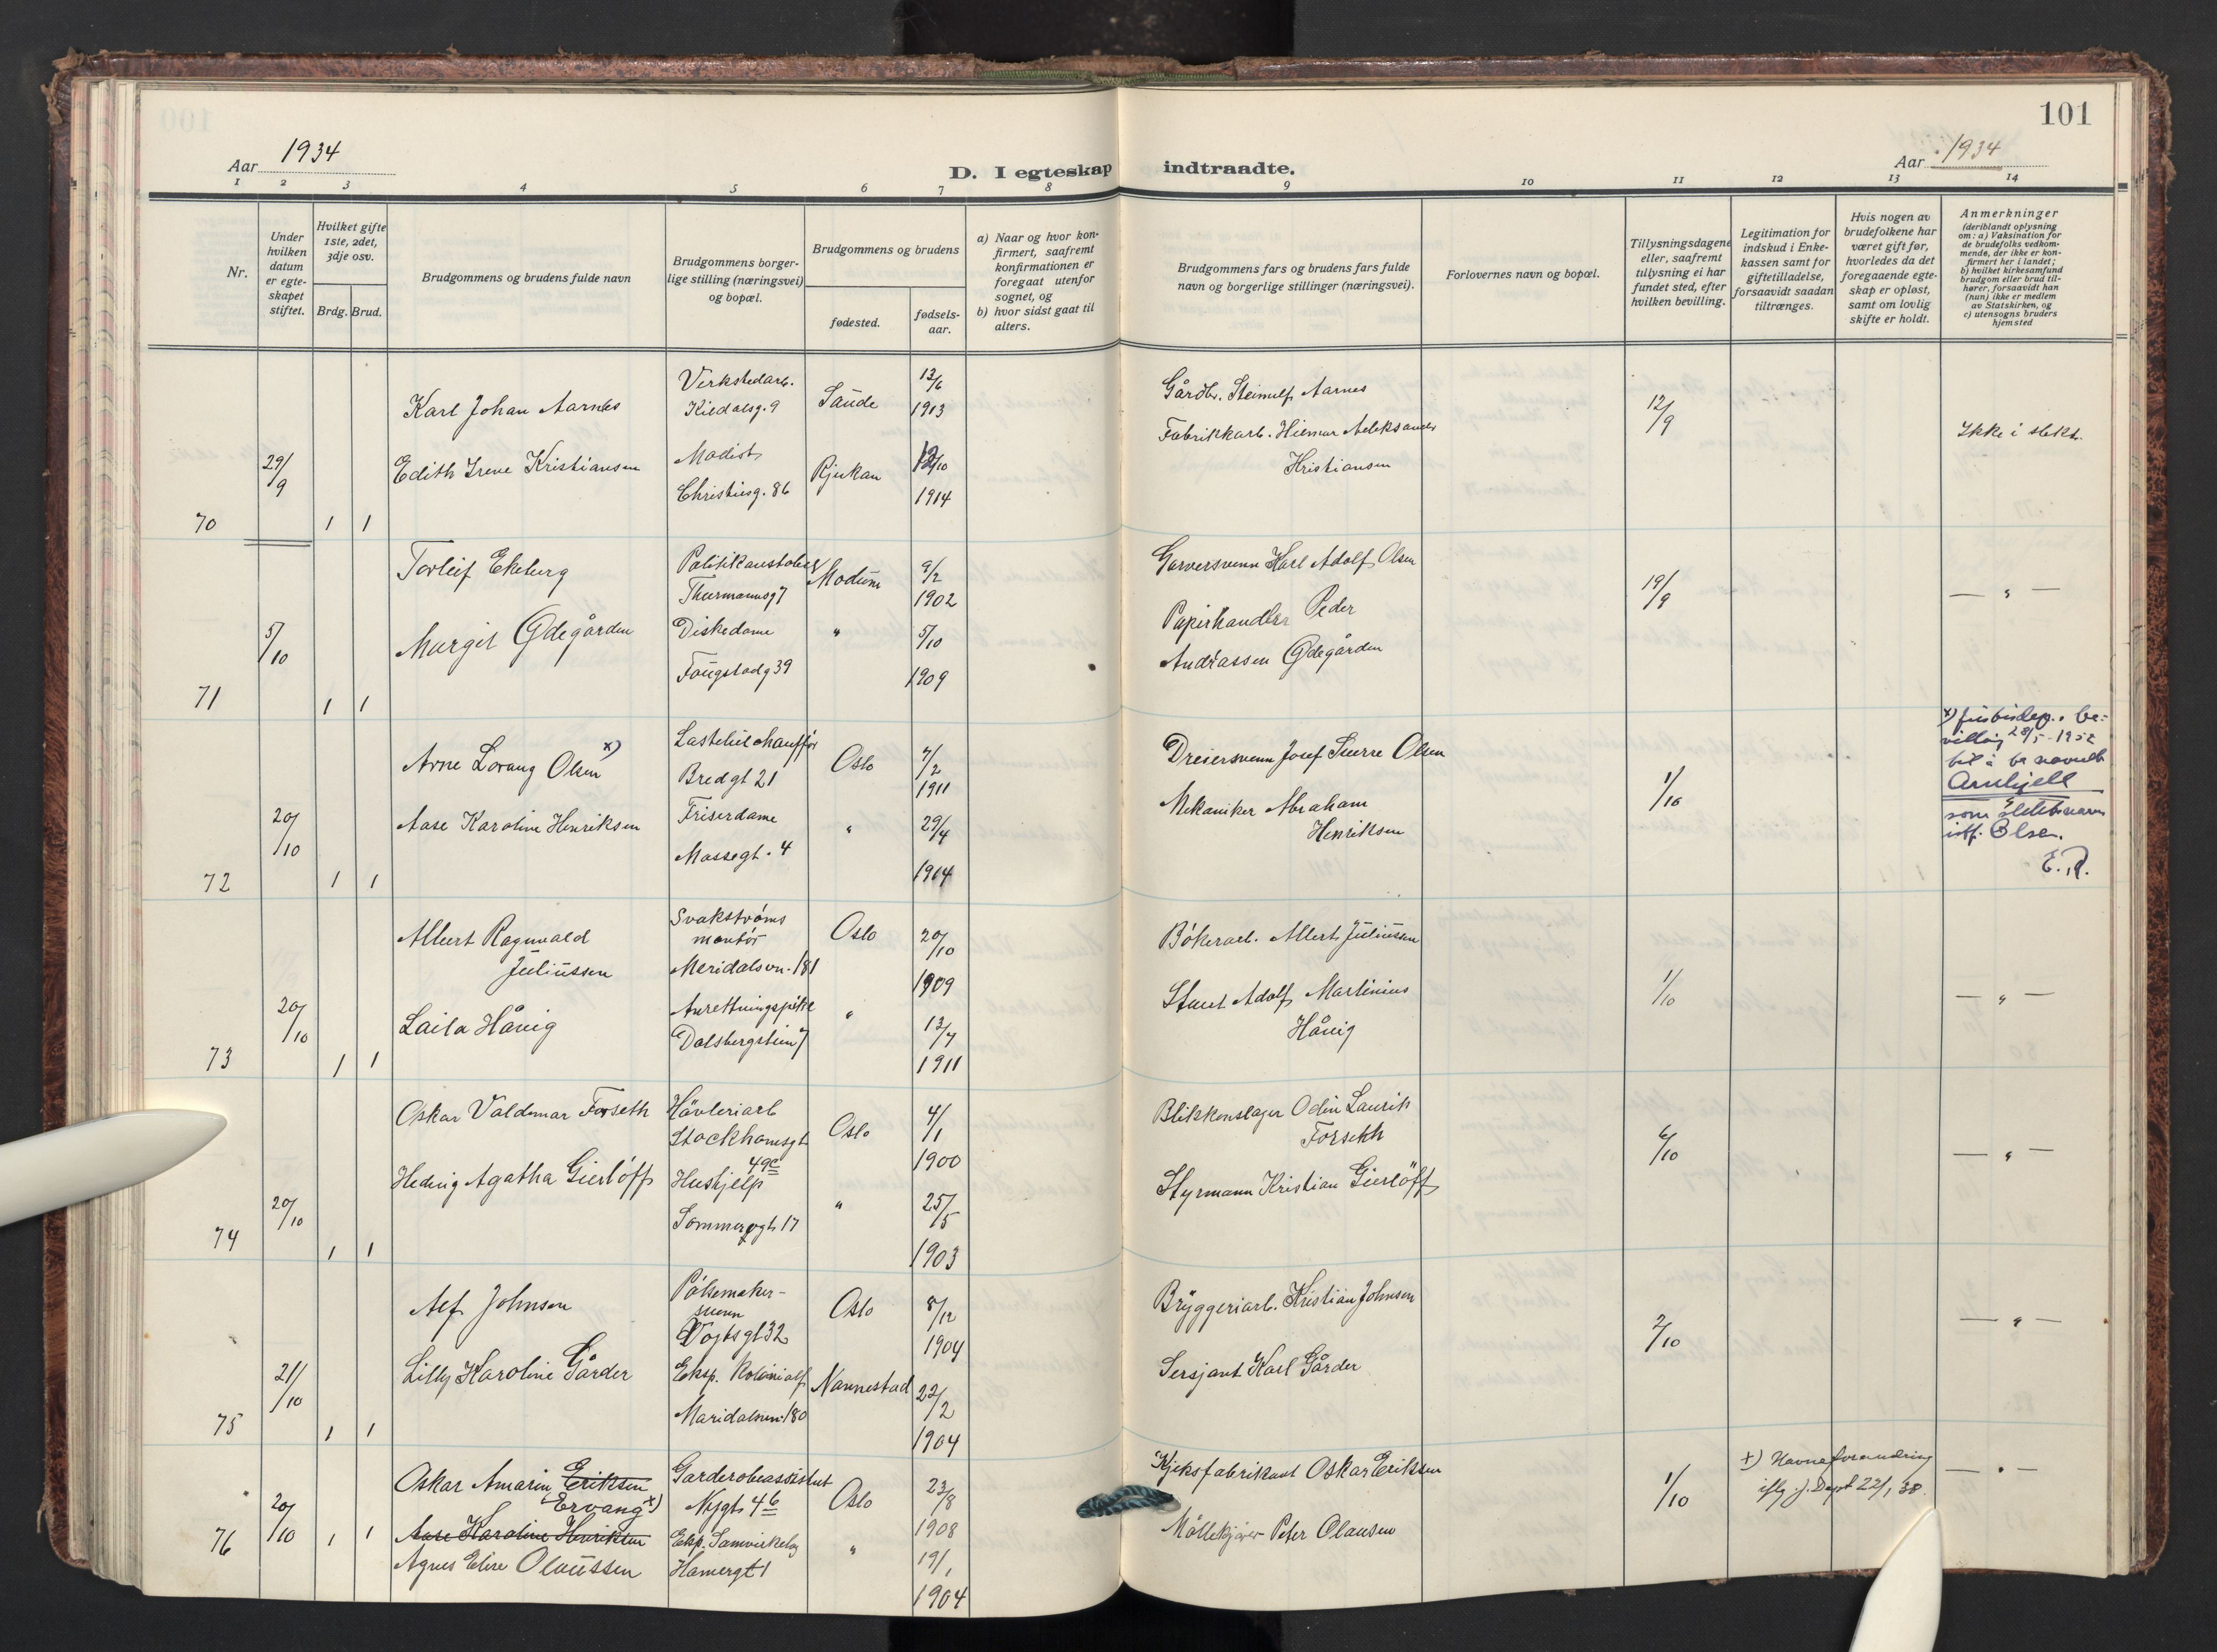 101
Aar 1934
D. I egteskap indtraadte.
Aar 1934
1 2 3 4 5 6 7 8 9 10 11 12 13 14
Nr.
Under hvilken datum er egteskapet stiftet.
Hvilket gifte 1ste, 2det, 3dje osv.
Brdg. Brud.
Brudgommens og brudens fulde navn
Brudgommens borgerlige stilling (næringsvei) og bopæl.
Brudgommens og brudens
fødested.
fødselsaar.
a) Naar og hvor konfirmert, saafremt konfirmationen er foregaat utenfor sognet, og
b) hvor sidst gaat til alters.
Brudgommens fars og brudens fars fulde navn og borgerlige stillinger (næringsvei).
Forlovernes navn og bopæl.
Tillysningsdagene eller, saafremt tillysning ei har fundet sted, efter hvilken bevilling.
Legitimation for indskud i Enkekassen samt for giftetilladelse, forsaavidt saadan tiltrænges.
Hvis nogen av brudefolkene har været gift før, hvorledes da det foregaaende egteskap er opløst, samt om lovlig skifte er holdt.
Anmerkninger
(deriblandt oplysning om: a) Vaksination for de brudefolks vedkommende, der ikke er konfirmert her i landet;
b) hvilket kirkesamfund brudgom eller brud tilhører, forsaavidt han (hun) ikke er medlem av Statskirken, og
c) utensogns bruders hjemsted
70 29/9 1 1
Karl Johan Aarnes Verkstedarb. Kildalsg. 9 Saude 13/6 1913 Gårdbr. Steinulf Aarnes 12/9 Ikke i slekt.
Edith Irene Kristiansen Modist Christiesg. 86 Rjukan 1914 Fabrikkarb. Hilmar Aleksander Kristiansen
71 5/10 1 1
Torleif Ekeberg Thurmannsg 7 Modum 9/2 1902 Garversvenn Karl Adolf Olsen 19/9 — " —
Margit Ødegården Diskedame Fougstadg 39 " 5/10 1909 Papirhandler Peder Andreassen Ødegården
72 20/10 1 1
Arne Lorang Olsen x) Lastebilchauffør Bredgt 21 Oslo 7/2 1911 Dreiersvenn Josef Sverre Olsen 1/10
Aase Karoline Henriksen Friserdame Mossegt. 4 " 29/4 1914 Mekaniker Abraham Henriksen
x) Justisdep. bevilling 28/5-1952 til å ta navnet Arnkjell som slektsnavn istf. Olsen.
E.R.
73 20/10 1 1
Albert Ragnvald Juliussen Svakstrøms montør Meridalsvn. 181 Oslo 20/10 1909 Bøkerarb. Albert Juliussen 1/10 — " —
Laila Hånig Anrettningspike Dalsbergstien 7 " 13/7 1911 Adolf Martinius Hånig
74 20/10 1 1
Oskar Valdemar Forseth Høvleriarb Stockhomsgt 49c Oslo 4/1 1900 Blikkenslager Odin Laurik Forseth 6/10 — " —
Hedvig Agatha Gierløff Hushjelp Sommerogt. 17 " 25/5 1903 Styrmann Kristian Gierløff
75 21/10 1 1
Alf Johnsen Pølsemakersvenn Vogtsgt 32 Oslo 8/12 1904 Bryggeriarb. Kristian Johnsen 2/10 — " —
Lilly Karoline Gårder Eksp. Kolonialf Maridalsvn. 180 Nannestad 22/2 1904 Sersjant Karl Gårder
76 20/10 1 1
Oskar Amarin Eriksen (Ervang x) Garderobeassistent Nygt. 4b Oslo 23/8 1908 Kjeksfabrikant Oskar Eriksen 1/10
x) Navneforandring iflg. j. Dept 22/1 38. — " —
Aase Karoline Henriksen
Agnes Elise Olaussen Eksp. Samvirkelag Hamergt 1 " 19/1 1904 Møllekjører Peter Olausen